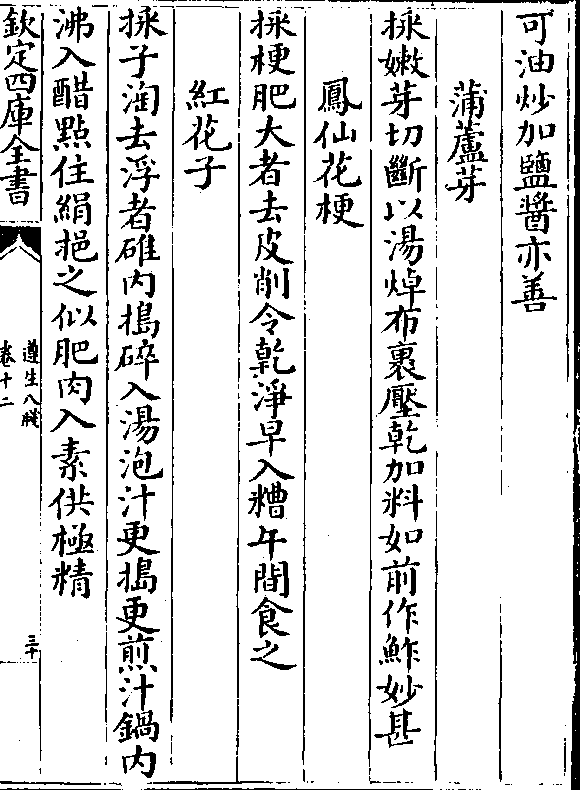 可油炒加鹽醬亦善
蒲蘆芽
採嫩芽切斷以湯焯布裹壓乾加料如前作鮓妙甚
鳳仙花梗
採梗肥大者去皮削令乾淨早入糟午間食之
紅花子
採子淘去浮者碓内搗碎入湯泡汁更搗更煎汁鍋内
沸入醋點住絹挹之似肥肉入素供極精
欽定四庫全書
遵生八牋
卷十二
三十